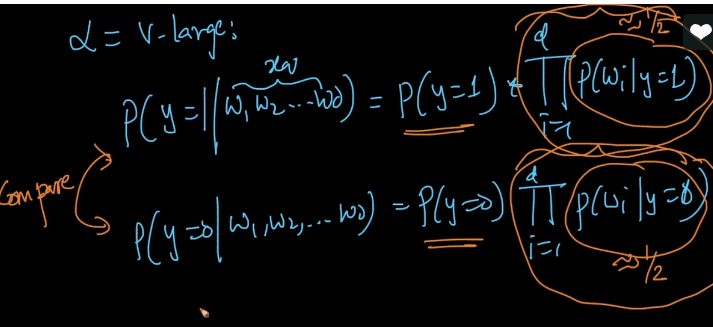 α = v-large:
≈ 1/2
xq
P(y=1|w1,w2...wd) = P(y=1) * d∏i=1 P(wi|y=1)
Compare
P(y=0|w1,w2,...wd) = P(y=0) d∏i=1 P(wi|y=0)
≈ 1/2